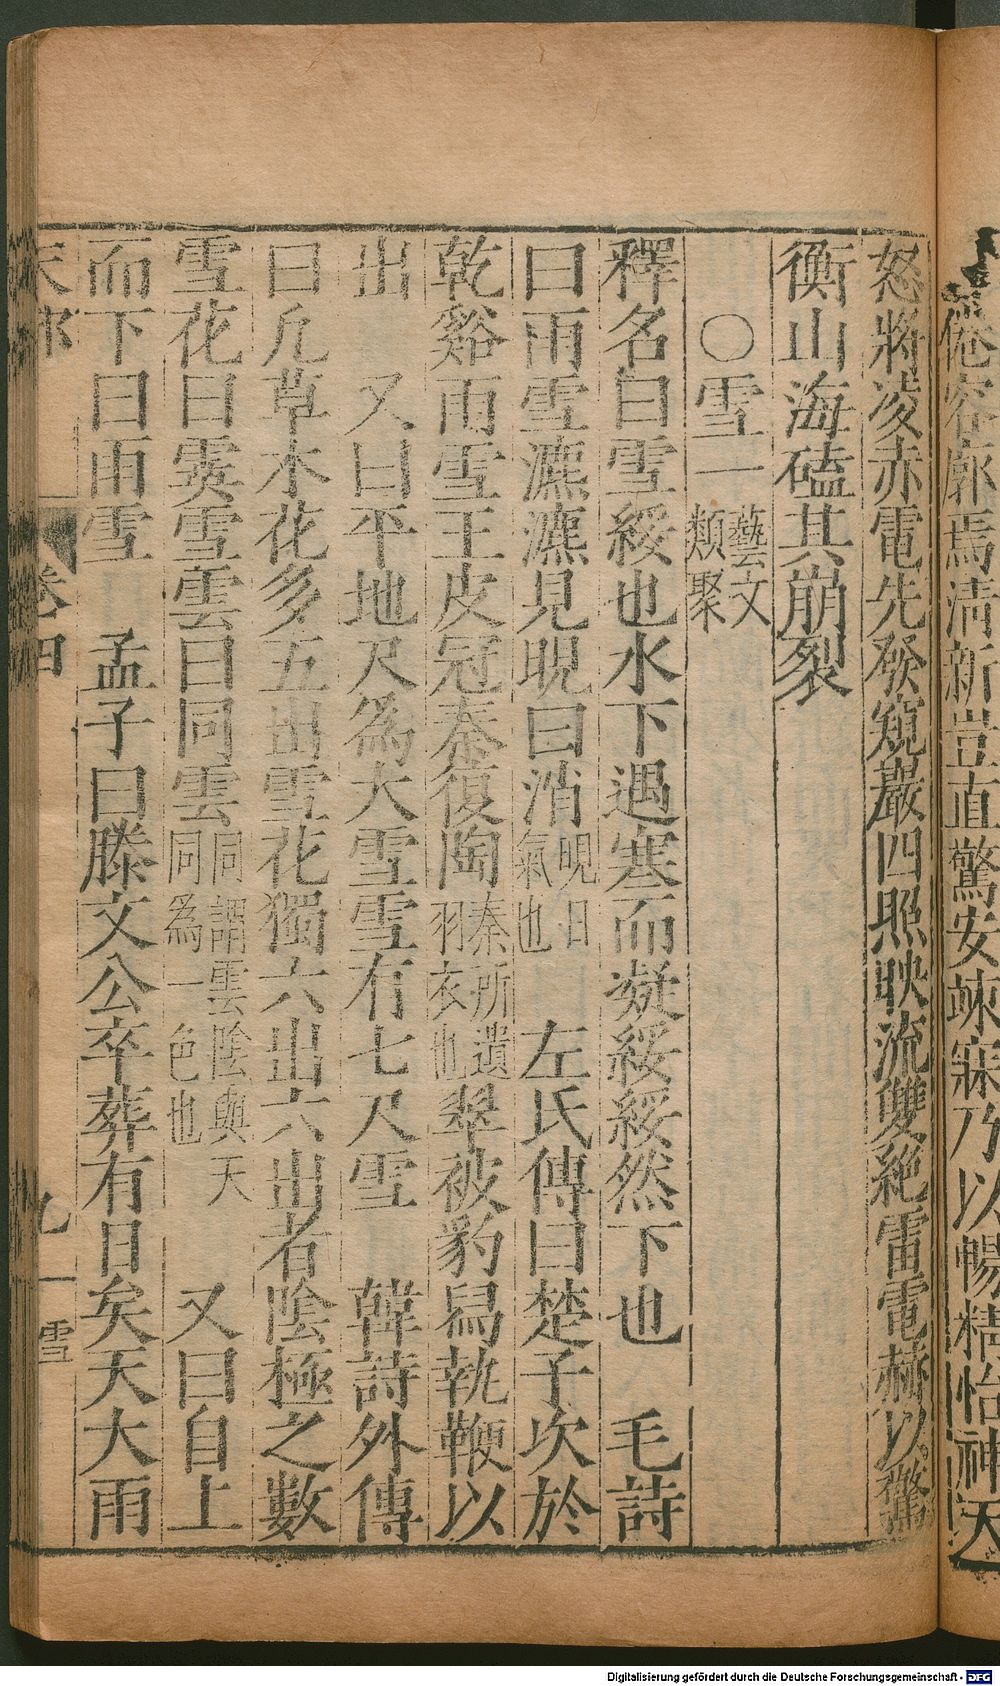 倦容廓焉清新豈直驚安竦寐乃以暢精怡神天
怒將凌赤電先發窺巖四照映流雙絶雷電赫以驚
衡山海磕其崩裂
○雪一藝文類聚
釋名曰雪綏也水下遇寒而凝綏綏然下也　毛詩
曰雨雪瀌瀌見晛曰消晛日氣也　左氏傳曰楚子次於
乾谿雨雪王皮冠秦復陶秦所遺羽衣也翠被豹舄執鞭以
出　又曰平地尺爲大雪雪有七尺雪　韓詩外傳
曰凡草木花多五出雪花獨六出六出者陰極之數
雪花曰霙雪雲曰同雲同謂雲陰與天同爲一色也　又曰自上
而下曰雨雪　孟子曰滕文公卒葬有日矣天大雨
天部　卷四　九　雪
Digitalisierung gefördert durch die Deutsche Forschungsgemeinschaft - DFG